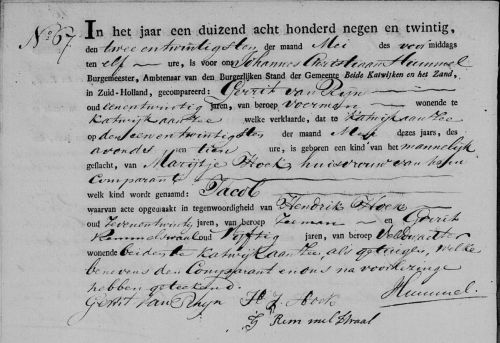 No 67.
In het jaar een duizend acht honderd negen en twintig,
den twee en twintigsten der maand Mei des voor middags
ten elf ure, is voor ons Johannes Hummel
Burgemeester, Ambtenaar van den Burgerlijken Stand der Gemeente Beide Katwijken en het Zand,
in Zuid-Holland, gecompareerd: Gerrit van Rijn
oud eenentwintig jaren, van beroep voerman wonende te
Katwijk aan Zee welke verklaarde, dat te Katwijk aan Zee
op den eenentwintigsten der maand Mei dezes jaars, des
avonds ten tien ure, is geboren een kind van het mannelijk
geslacht, van Marijtje Hoek huisvrouw van hem
Comparant
welk kind wordt genaamd: Jacob
waarvan acte opgemaakt in tegenwoordigheid van Hendrik Hoek
oud Zevenentwintig jaren, van beroep Zeeman en Gerrit
Remmelswaal oud Vijftig jaren, van beroep Veldwachter
wonende beiden te Katwijk aan Zee, als getuigen, welke
benevens den Comparant en ons na voorlezinge
hebben geteekend.
Gerrit van Rhyn H J Hoek Hummel.
G Remmelswaal